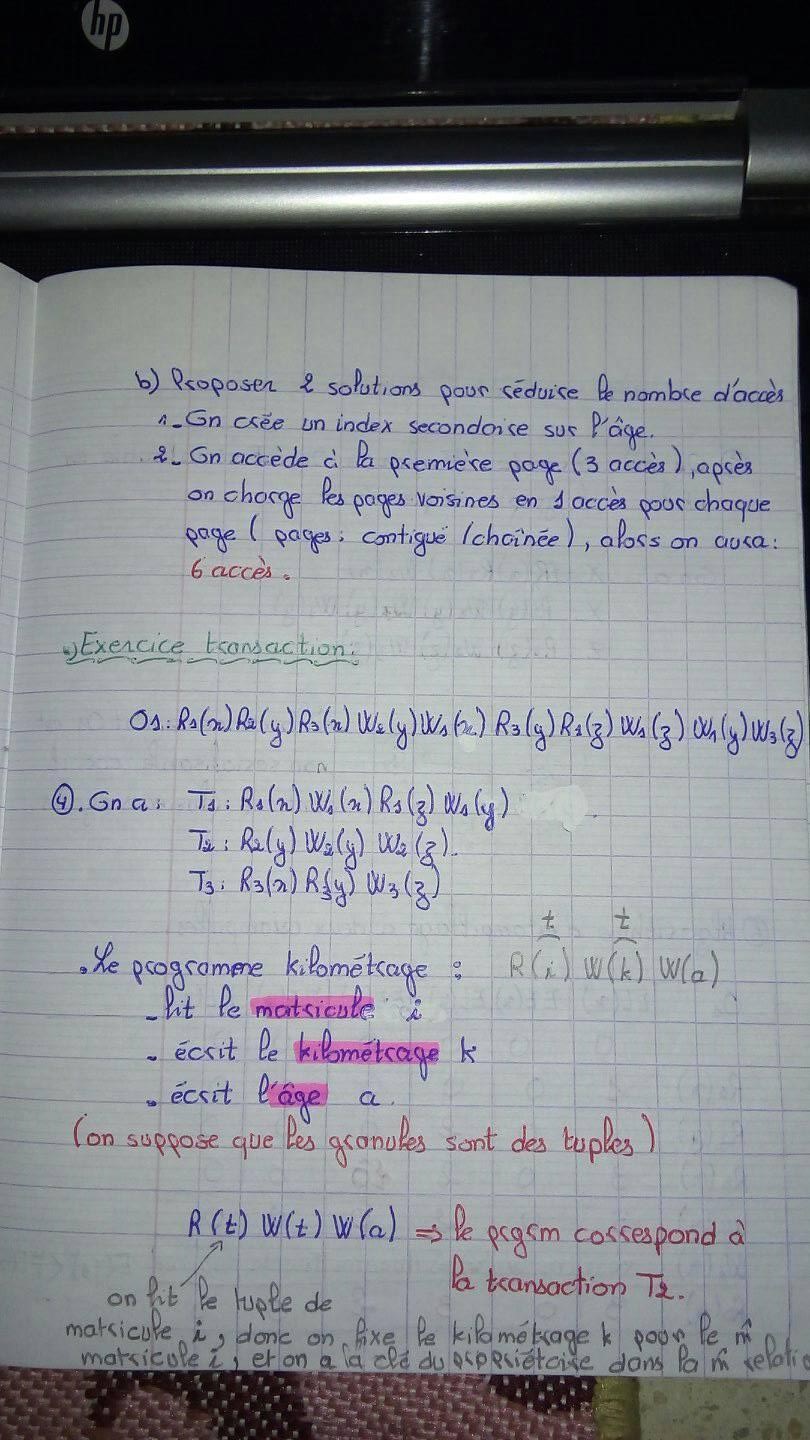 hp
b) Proposer 2 solutions pour réduire le nombre d'accès
1- On crée un index secondaire sur l'âge.
2- On accède à la première page (3 accès), après
on charge les pages voisines en 1 accès pour chaque
page ( pages : contiguë / chaînée), alors on aura :
6 accès.
Exercice transaction :
O1 : R1(x) R2(y) R3(x) W2(y) W1(x) R3(y) R1(z) W2(z) W1(y) W3(z)
④. On a : T1 : R1(x) W1(x) R1(z) W1(y)
T2 : R2(y) W2(y) W2(z).
T3 : R3(x) R3(y) W3(z)
t t
. Le programme kilométrage : R(i) W(k) W(a)
- lit le matricule i
- écrit le kilométrage k
- écrit l'âge a.
(on suppose que les granules sont des tuples)
R(t) W(t) W(a) ⇒ le prgrm correspond à
la transaction T2.
on lit le tuple de
matricule i, donc on fixe le kilométrage k pour le m̂
matricule i, et on a la clé du propriétaire dans la m̂ relatio